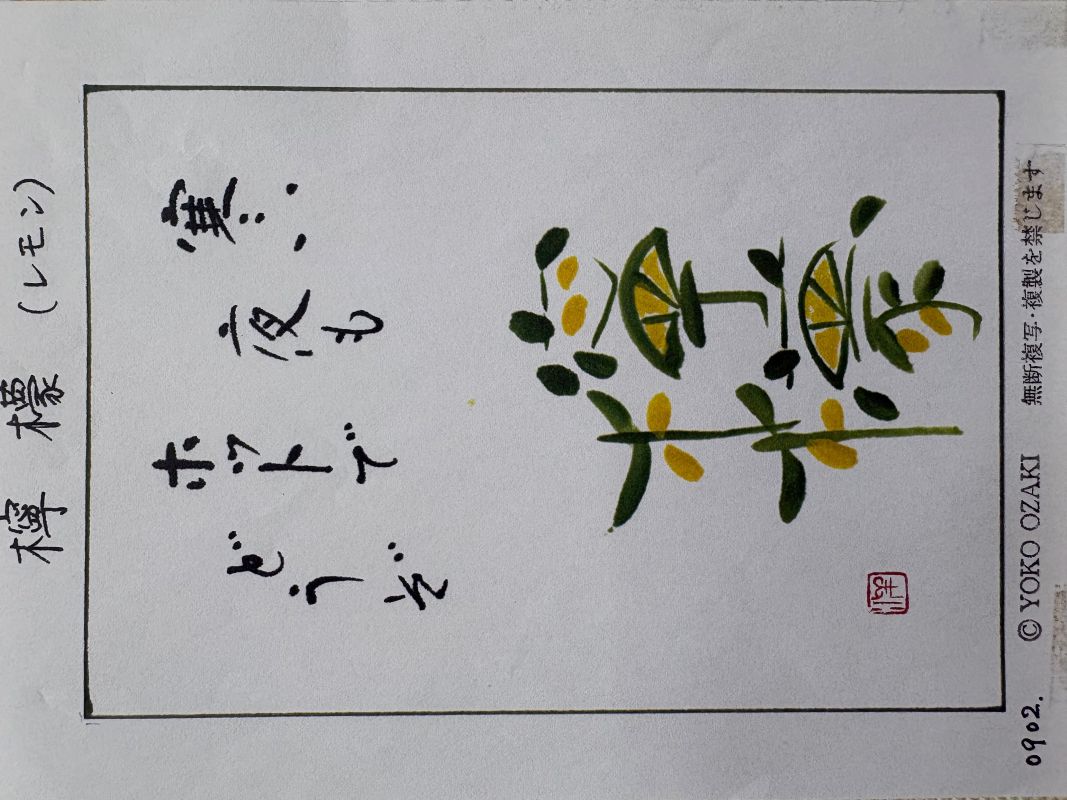 檸檬 (レモン)
寒い
夜も
ホットで
どうぞ
檸檬
0902. © YOKO OZAKI 無断複写・複製を禁じます